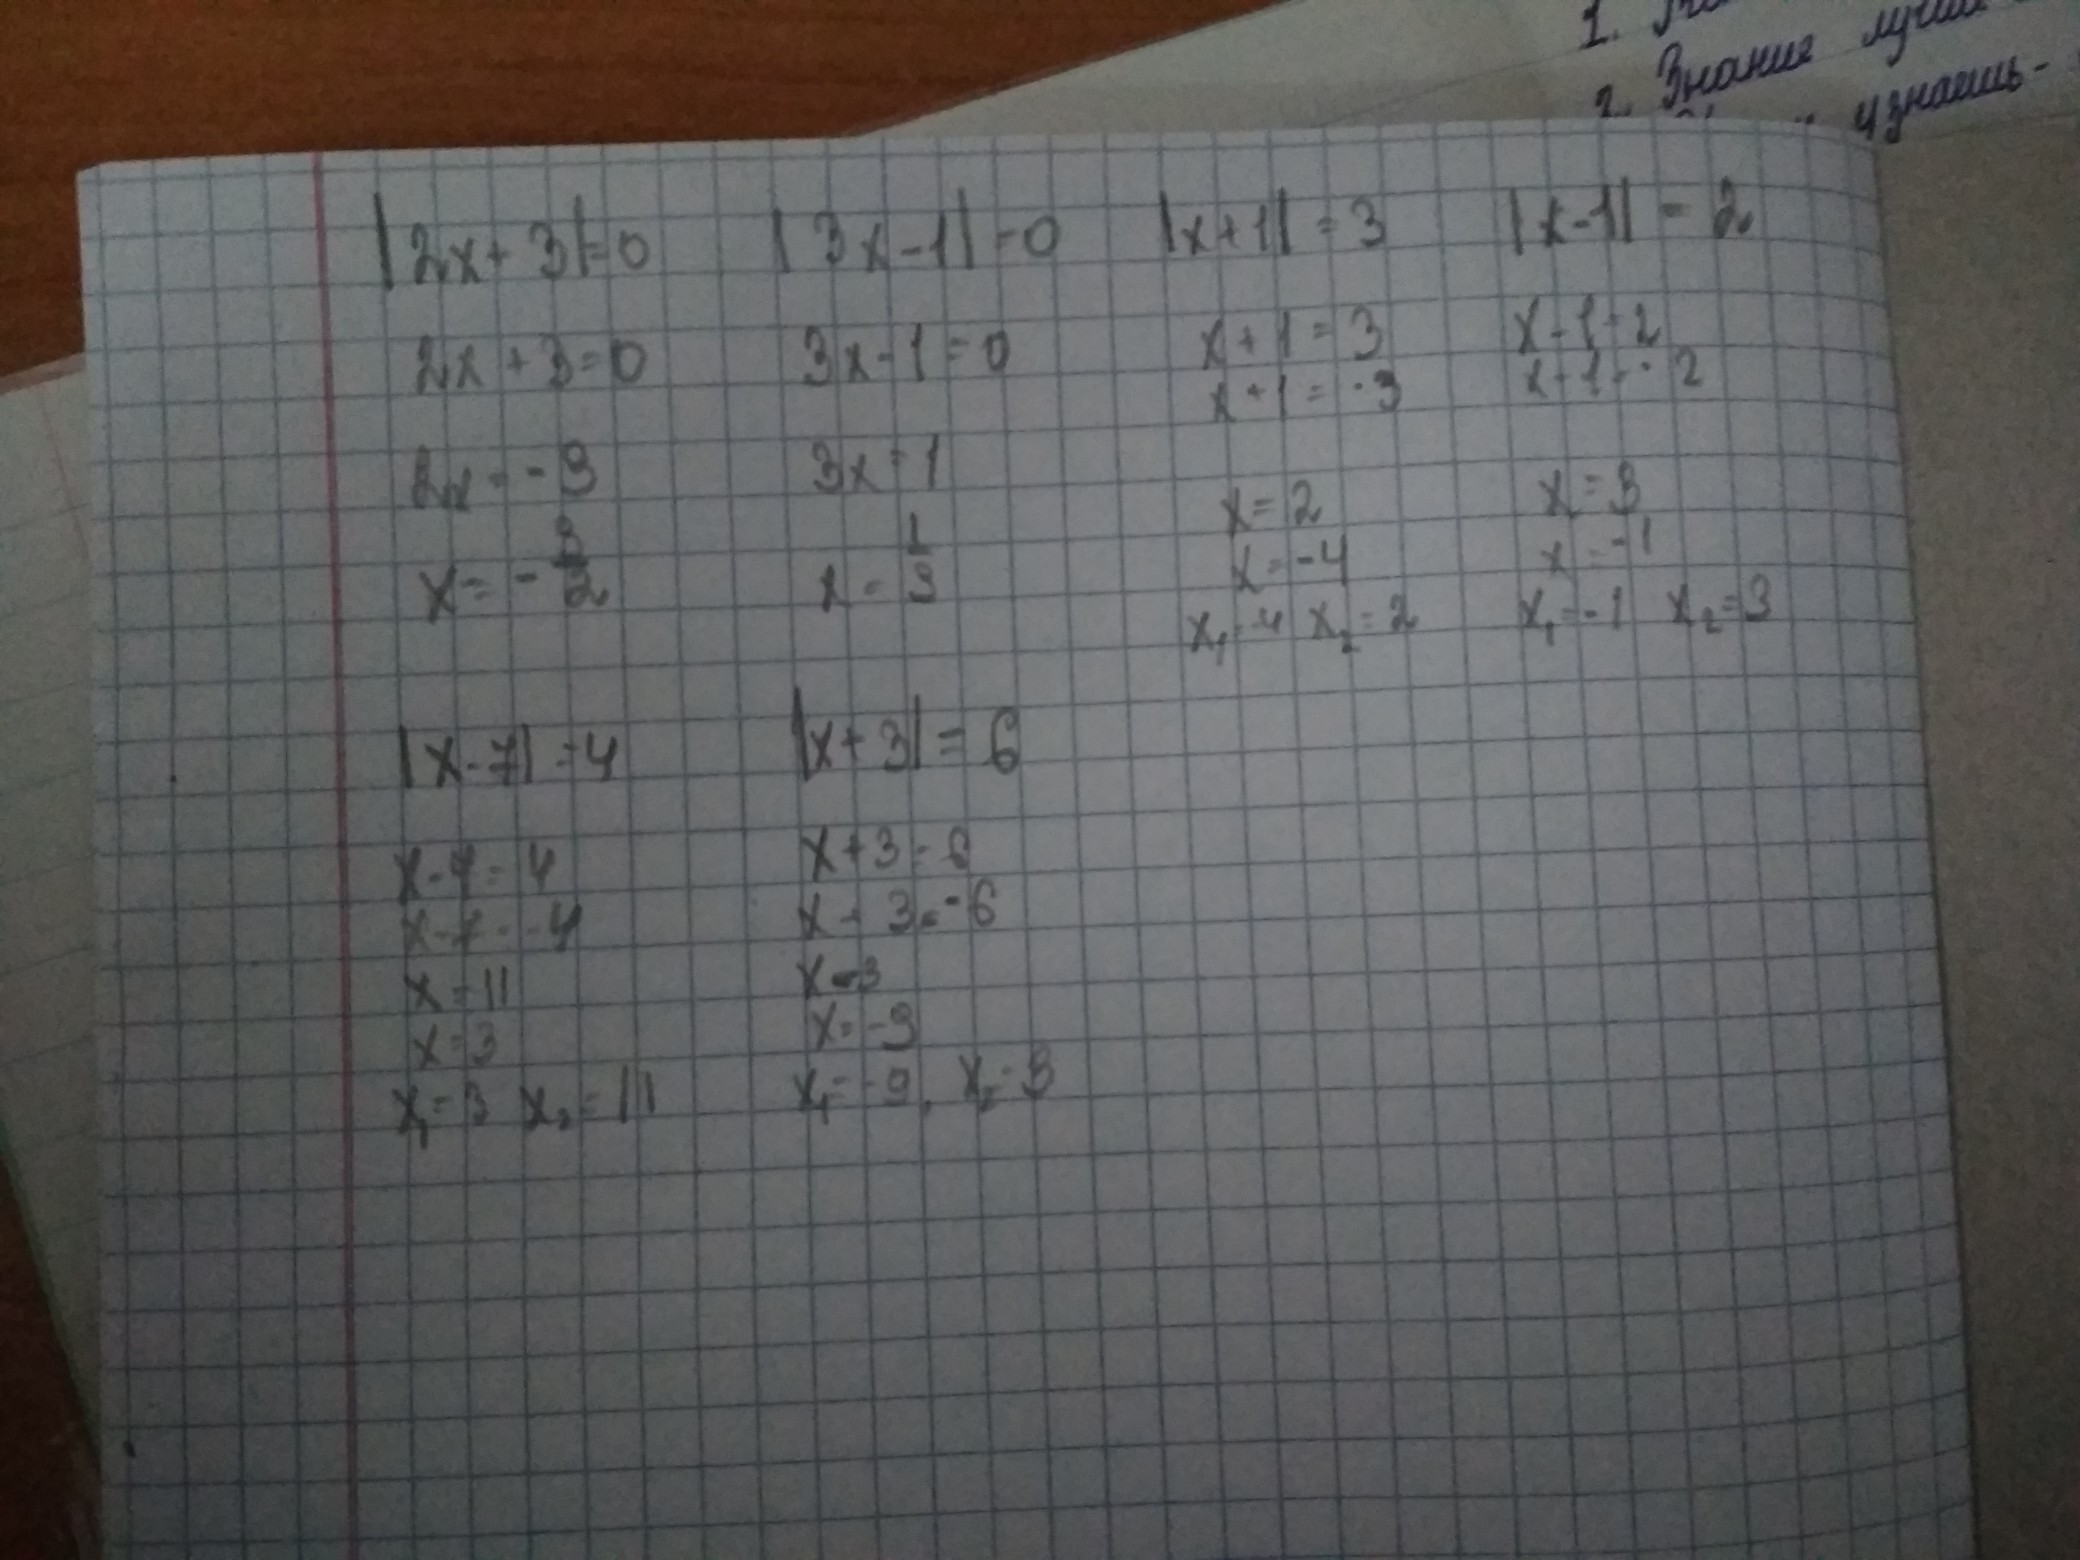 1.
2. Знание лучше
узнаешь-
|2x+3|=0
2x+3=0
2x=-3
x=-3/2
|3x-1|=0
3x-1=0
3x=1
x=1/3
|x+1|=3
x+1=3
x+1=-3
x=2
x=-4
x₁=-4 x₂=2
|x-1|=2
x-1=2
x-1=-2
x=3
x=-1
x₁=-1 x₂=3
|x-7|=4
x-7=4
x-7=-4
x=11
x=3
x₁=3 x₂=11
|x+3|=6
x+3=6
x+3=-6
x=3
x=-9
x₁=-9, x₂=3